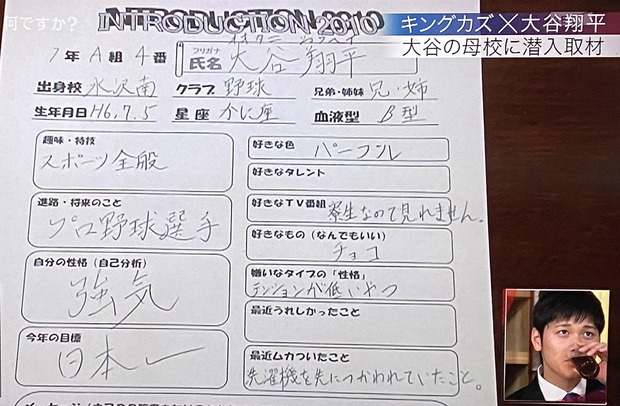 何ですか?
キングカズ×大谷翔平
大谷の母校に潜入取材
INTRODUCTION 2010
1年 A組 4番
フリガナ
氏名 大谷 翔平
出身校 水沢南 クラブ 野球 兄弟・姉妹 兄・姉
生年月日 H6.7.5 星座 かに座 血液型 B型
趣味・特技
スポーツ全般
進路・将来のこと
プロ野球選手
自分の性格(自己分析)
強気
今年の目標
日本一
好きな色 パープル
好きなタレント
好きなTV番組 寮生なので見れません。
好きなもの(なんでもいい)
チョコ
嫌いなタイプの「性格」
テンションが低いやつ
最近うれしかったこと
最近ムカついたこと
洗濯機を先につかわれていたこと。